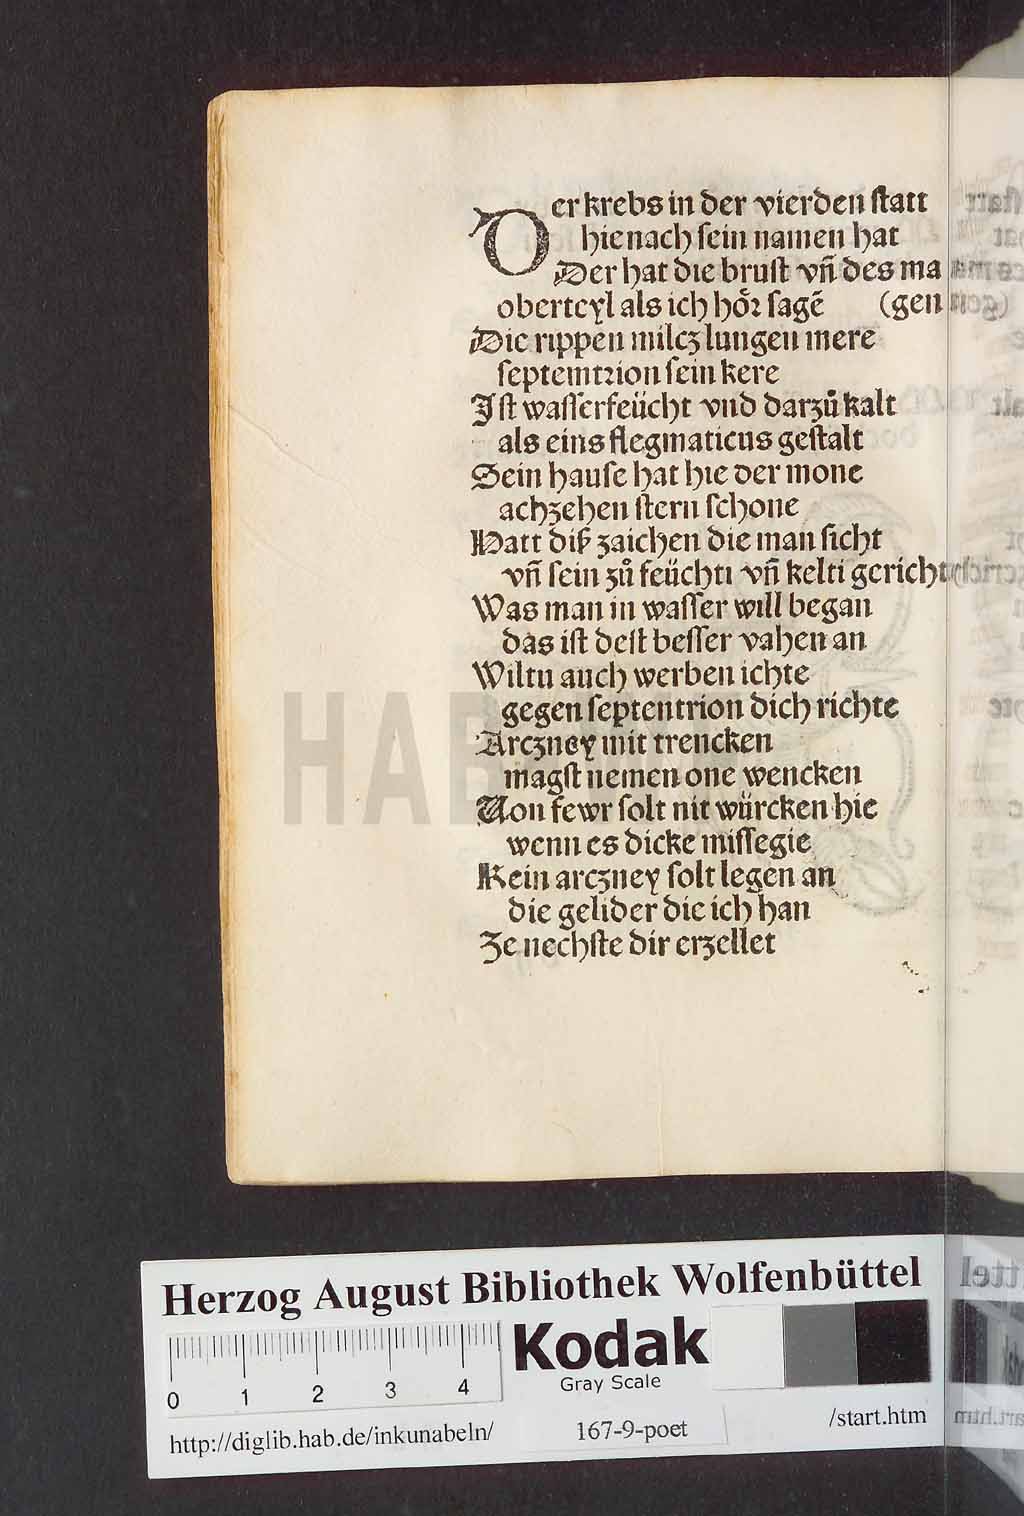 Der krebs in der vierden ſtatt
hienach ſein namen hat
Der hat die bruſt vñ des ma
oberteyl als ich hoͤꝛ ſagẽ (gen
Die rippen milcz lungen mere
ſeptemtꝛion ſein kere
Iſt waſſerfeücht vnd darzuͦ kalt
als eins flegmaticus geſtalt
Sein hauſe hat hie der mone
achzehen ſtern ſchone
Hatt diß zaichen die man ſicht
vñ ſein zuͦ feüchti vñ kelti gericht
Was man in waſſer will began
das iſt deſt beſſer vahen an
Wiltu auch werben ichte
gegen ſeptentrion dich richte
Arczney mit trencken
magſt nemen one wencken
Von fewr ſolt nit würcken hie
wenn es dicke miſſegie
Kein arczney ſolt legen an
die gelider die ich han
Ze nechſte dir erzellet
HAB
Herzog August Bibliothek Wolfenbüttel
0 1 2 3 4
Kodak
Gray Scale
http://diglib.hab.de/inkunabeln/ 167-9-poet /start.htm